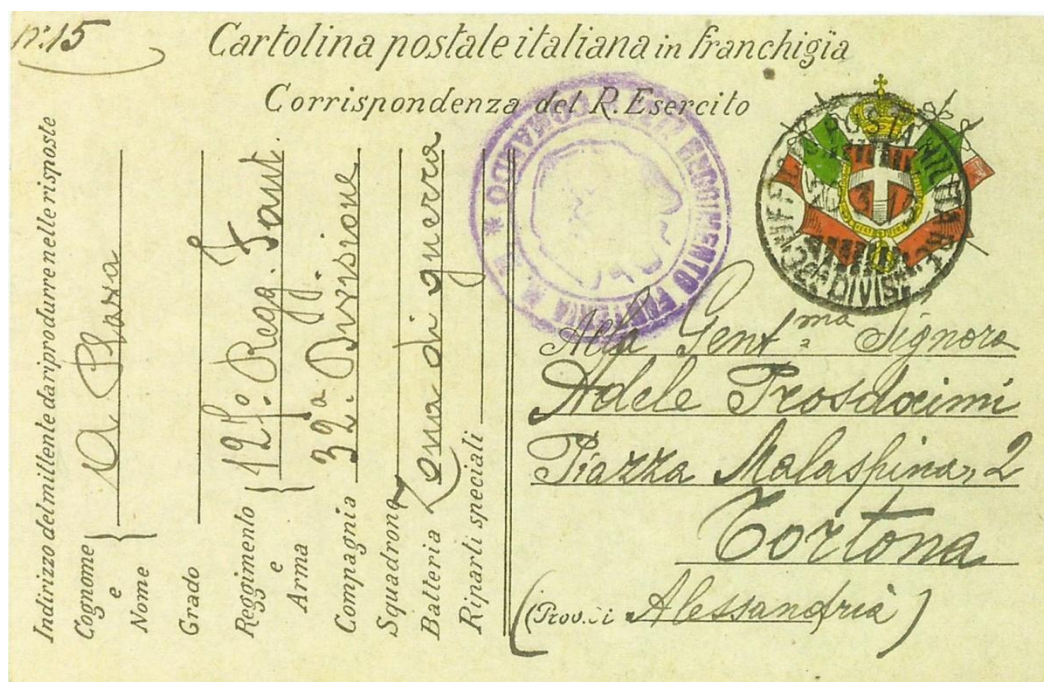 n: 15
Cartolina postale italiana in franchigia
Corrispondenza del R. Esercito
Indirizzo del mittente da riprodurre nelle risposte
Cognome e Nome
A
Grado
Reggimento e Arma
125º. Regg. Fant.
Compagnia
32ª Divisione
Squadrone
Batteria
Zona di guerra
Riparti speciali
REGGIMENTO FANTERIA
COMANDO
POSTA MILITARE
DIVIS
Alla Gentma Signora
Adele Prosdocimi
Piazza Malaspina, 2
Tortona
(Prov. di Alessandria)